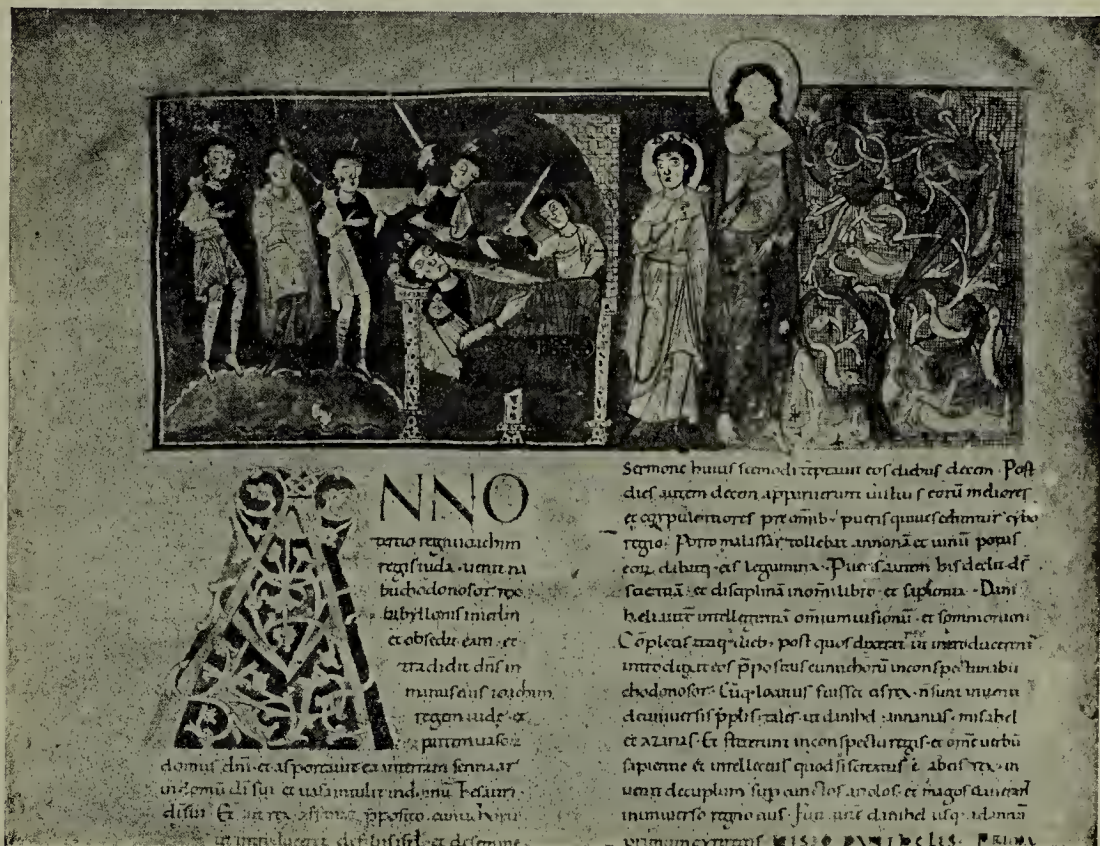 ANNO
tertio regni ioachim
regis iuda · uenit na
buchodonosor rex
babyllonis in ierlm
et obsedit eam · et
tradidit dñs in
manu eius ioachim
regem iude · et
partem
domus dñi · et asportauit ea interram sennaar
in domũ di sui et uasa intulit indomũ
di sui · Et ait rex p̃posito
ut introduceret de filiis isrł et de semine
Sermone huiuscemodi temptauit eos diebus decem · Post
dies autem decem apparuerunt uultus eorũ meliores
et corpulentiores pre omnib; pueris qui uescebantur cybo
regio · Porro malassar tollebat annonã et uinũ potus
eorũ dabatq; eis legumina · Pueris autem his dedit dš
scientiã · et disciplinã in omni libro · et sapientia · Dani
heli autẽ intellegentiã omnium uisionũ · et somniorum ·
Cõpletis itaq; dieb; post quos dixerat rex ut introducerent̃
introduxit eos p̃positus eunuchorũ inconspectu nabu
chodonosor · Cũq; locutus fuisset eis rex · ñ sunt inuenti
de uniuersis p̃plis tales · ut danihel · annanias · misahel
et azarias · Et steterunt inconspectu regis · et om̃e uerbũ
sapientie et intellectus quod sciscitatus ẽ ab eis rex · in
uenit decuplum sup cunctos ariolos · et magos qui erant
in uniuerso regno eius · Fuit autẽ danihel usq; ad annũ
primum cyri regis VISIO DANIHELIS · PRIMA